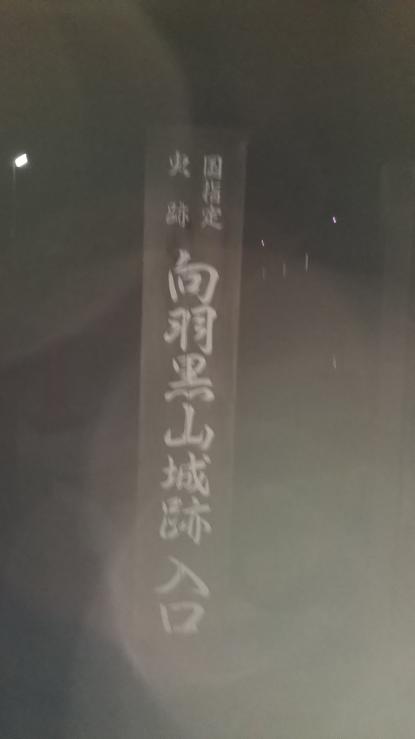 国指定
史跡
向羽黒山城跡 入口